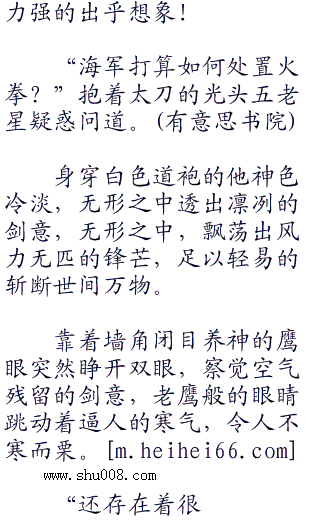 力强的出乎想象!
“海军打算如何处置火
拳?”抱着太刀的光头五老
星疑惑问道。(有意思书院)
身穿白色道袍的他神色
冷淡，无形之中透出凛冽的
剑意，无形之中，飘荡出风
力无匹的锋芒，足以轻易的
斩断世间万物。
靠着墙角闭目养神的鹰
眼突然睁开双眼，察觉空气
残留的剑意，老鹰般的眼睛
跳动着逼人的寒气，令人不
寒而栗。[m.heihei66.com]
www.shu008.com
“还存在着很